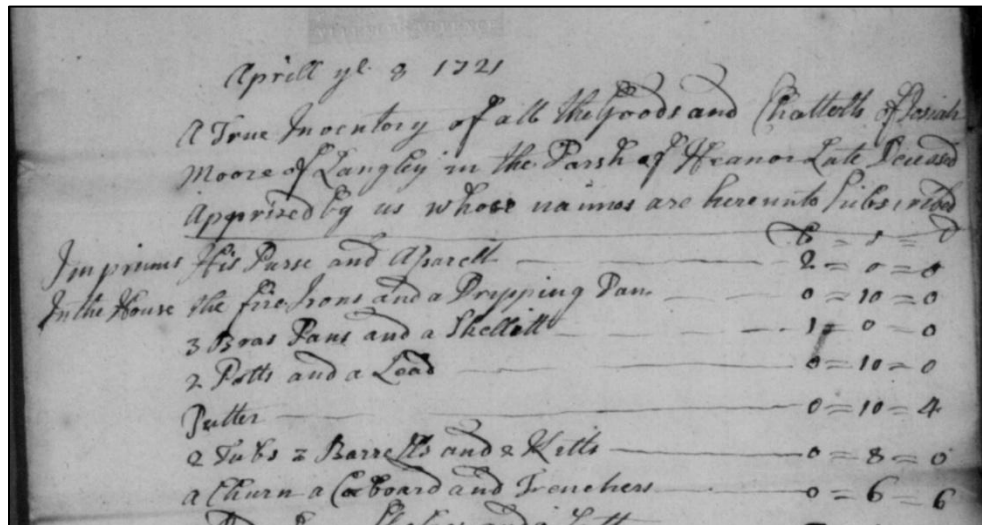 Aprill ye 8 1721
A True Inventory of all the Goods and Chattells of Josiah
Moore of Langley in the Parsh of Heanor Late Deceased
Apprized by us whose naimes are hereunto Subscribed
£ = s = d
Imprimis His Purse and Aparell — 2 = 0 = 0
In the House the fire Irons and a Dripping Pan — 0 = 10 = 0
3 Bras Pans and a Skellitt — 1 = 0 = 0
2 Potts and a Lead — 0 = 10 = 0
Putter — 0 = 10 = 4
2 Tubs 2 Barrells and 2 Kitts — 0 = 8 = 0
a Churn a Coboard and Trenchers — 0 = 6 = 6